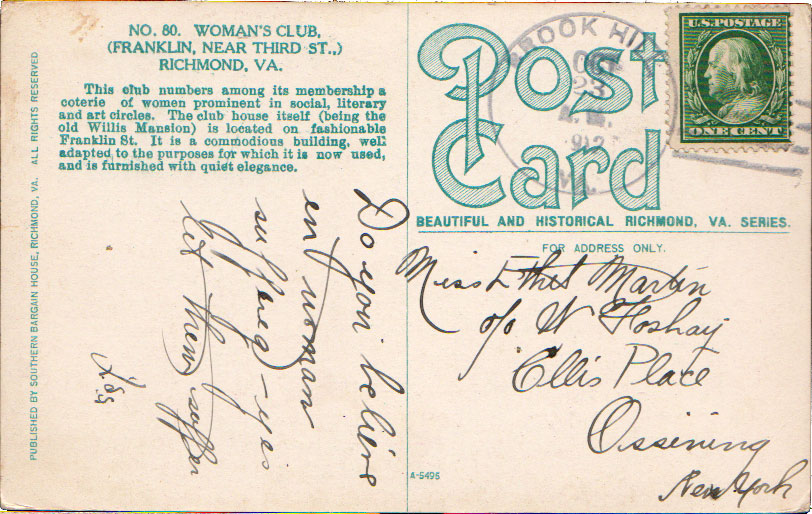 NO. 80. WOMAN'S CLUB,
(FRANKLIN, NEAR THIRD ST.,)
RICHMOND, VA.
This club numbers among its membership a
coterie of women prominent in social, literary
and art circles. The club house itself (being the
old Willis Mansion) is located on fashionable
Franklin St. It is a commodious building, well
adapted to the purposes for which it is now used,
and is furnished with quiet elegance.
PUBLISHED BY SOUTHERN BARGAIN HOUSE, RICHMOND, VA. ALL RIGHTS RESERVED
Do you believe
en woman
suffreg - yes
let them suffer
Post
Card
BEAUTIFUL AND HISTORICAL RICHMOND, VA. SERIES.
FOR ADDRESS ONLY.
BROOK HILL
OCT
23
A.M.
1912
VA.
U.S. POSTAGE
ONE CENT
Miss Ethel Martin
c/o W Foshay
Ellis Place
Ossining
New York
A-5495